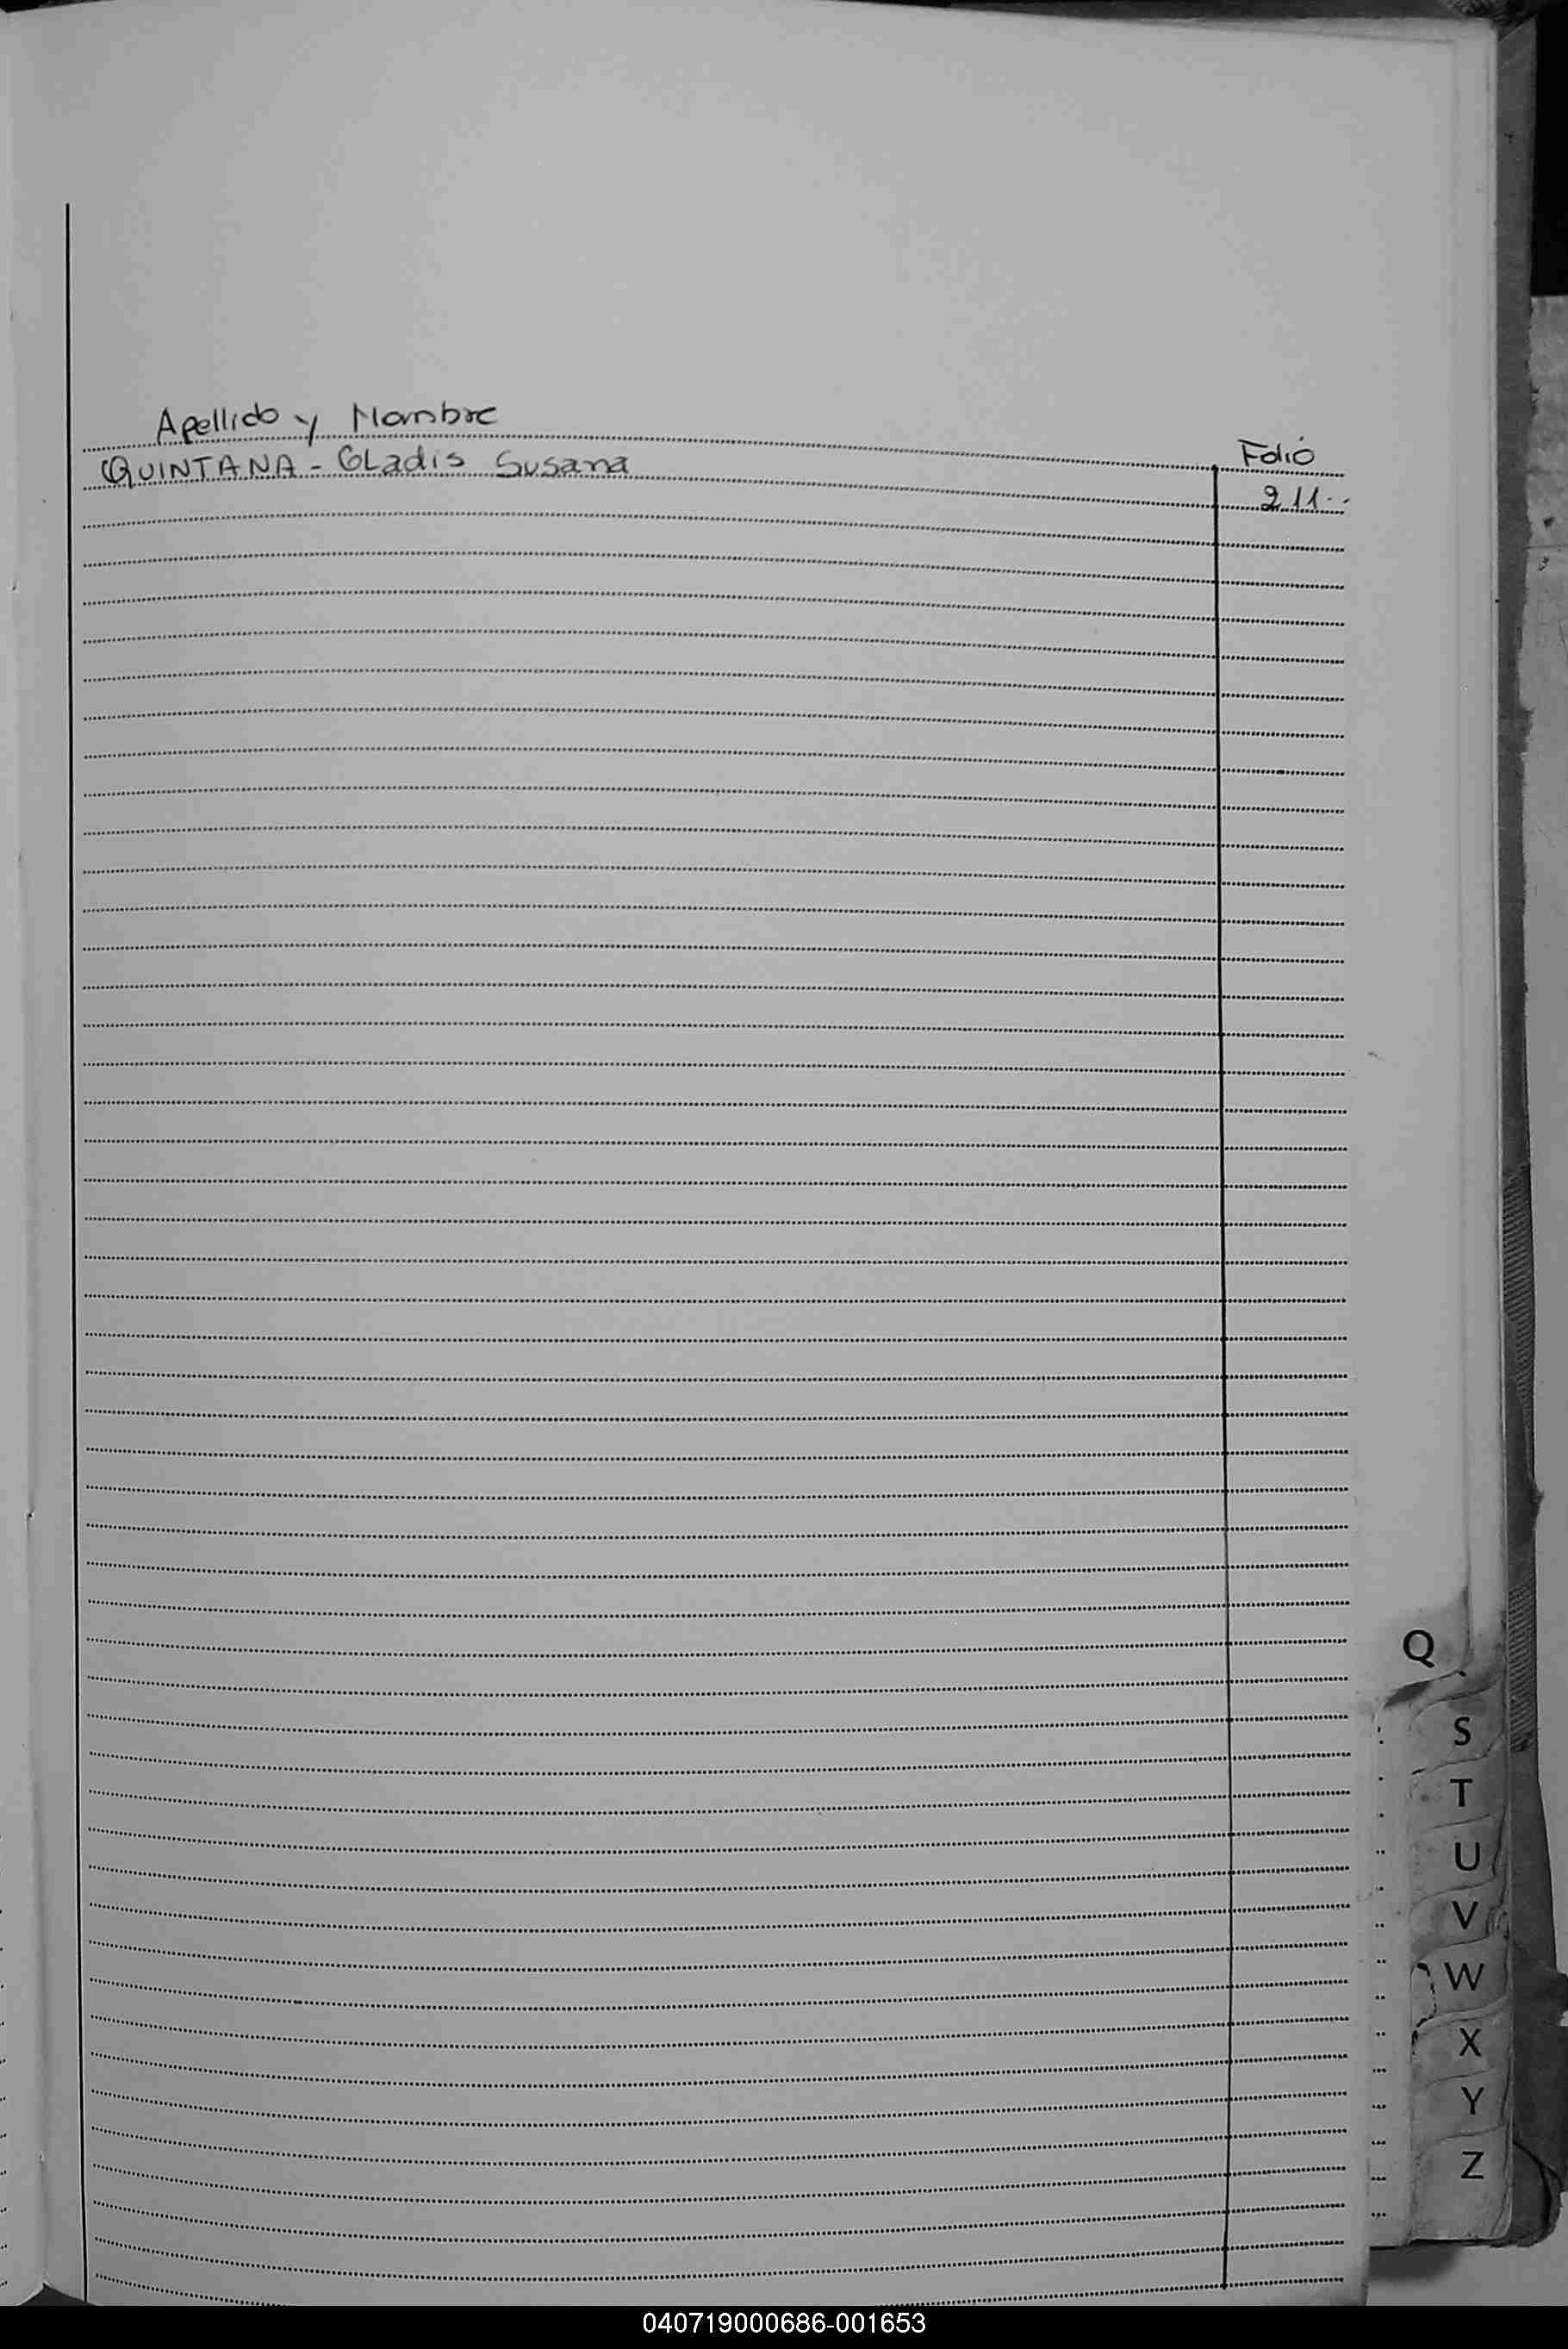 Apellido y Nombre
Folio
QUINTANA - GLadis Susana
211
Q
S
T
U
V
W
X
Y
Z
040719000686-001653